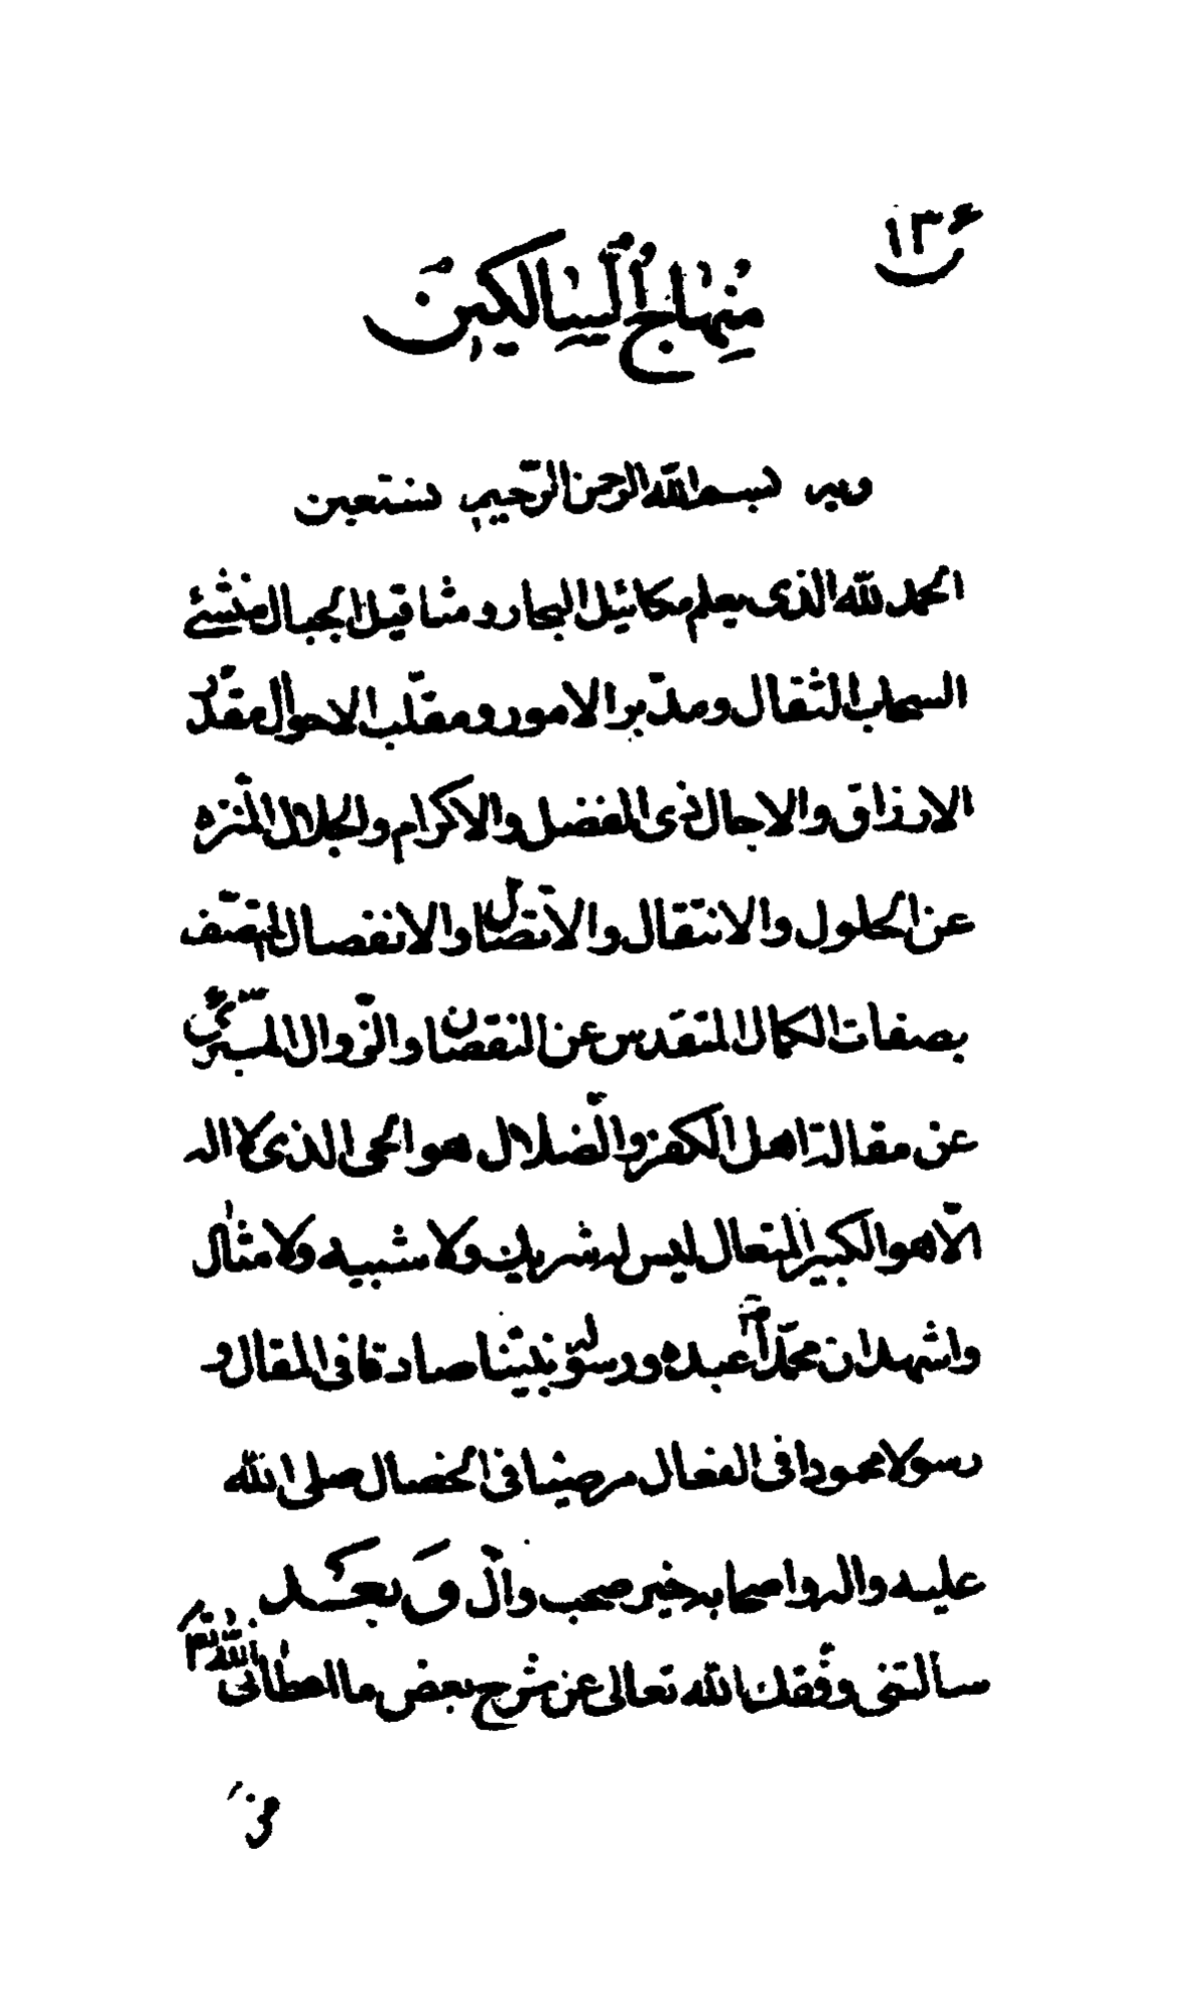 ١٣٤
مِنْهٰاجُ السّٰالِكٖينَ
وبه بسم الله الرحمن الرّحيم نستعين
الحمد لله الذى يعلم مكائيل البحار و مثاقيل الجبال منشئ
السحاب الثقال و مدّبر الامور و مقلّب الاحوال مقدّر
الارزاق والاجال ذى الفضل والاكرام والجلال المنّزه
عن الحلول والانتقال والاتّصال والانفصال المتّصف
بصفات الكمال المتقدس عن النقصان والزّوال المتبرّئ
عن مقالة اهل الكفر والضّلال هو الحى الذى لا اله
الّا هو الكبير المتعال ليس له شريك ولا شبيه ولا مثال
واشهد ان محمّداً عبده ورسوله نبيّنا صادقا فى المقال و
رسولا محمودا فى الفعال مرضيّا فى الخصال صلى الله
عليه واله واصحابه خير صحب وآل وَ بَعْد
سألتنى وفّقك الله تعالى عن شرح بعض ما اعطانى الله تم
من